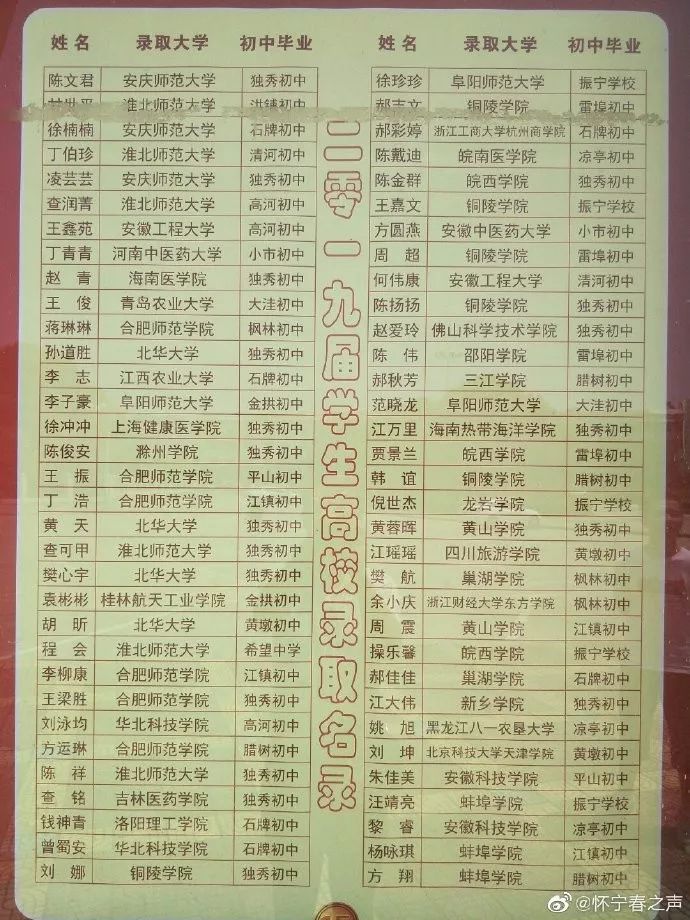 姓名 录取大学 初中毕业
陈文君 安庆师范大学 独秀初中
淮北师范大学 洪铺初中
徐楠楠 安庆师范大学 石牌初中
丁伯珍 淮北师范大学 清河初中
凌芸芸 安庆师范大学 独秀初中
查润菁 淮北师范大学 高河初中
王鑫苑 安徽工程大学 高河初中
丁青青 河南中医药大学 小市初中
赵青 海南医学院 独秀初中
王俊 青岛农业大学 大洼初中
蒋琳琳 合肥师范学院 枫林初中
孙道胜 北华大学 独秀初中
李志 江西农业大学 石牌初中
李子豪 阜阳师范大学 金拱初中
徐冲冲 上海健康医学院 独秀初中
陈俊安 滁州学院 独秀初中
王振 合肥师范学院 平山初中
丁浩 合肥师范学院 江镇初中
黄天 北华大学 独秀初中
查可甲 淮北师范大学 独秀初中
樊心宇 北华大学 独秀初中
袁彬彬 桂林航天工业学院 金拱初中
胡昕 北华大学 黄墩初中
程会 淮北师范大学 希望中学
李柳康 合肥师范学院 江镇初中
王梁胜 合肥师范学院 独秀初中
刘泳均 华北科技学院 高河初中
方运琳 合肥师范学院 腊树初中
陈祥 淮北师范大学 独秀初中
查铭 吉林医药学院 独秀初中
钱神青 洛阳理工学院 石牌初中
曾蜀安 华北科技学院 石牌初中
刘娜 铜陵学院 独秀初中
二零一九届学生高校录取名录
姓名 录取大学 初中毕业
徐珍珍 阜阳师范大学 振宁学校
郝志文 铜陵学院 雷埠初中
郝彩婷 浙江工商大学杭州商学院 石牌初中
陈戴迪 皖南医学院 凉亭初中
陈金群 皖西学院 独秀初中
王嘉文 铜陵学院 振宁学校
方圆燕 安徽中医药大学 小市初中
周超 铜陵学院 雷埠初中
何伟康 安徽工程大学 清河初中
陈扬扬 铜陵学院 独秀初中
赵爱玲 佛山科学技术学院 独秀初中
陈伟 邵阳学院 雷埠初中
郝秋芳 三江学院 腊树初中
范晓龙 阜阳师范大学 大洼初中
江万里 海南热带海洋学院 独秀初中
贾景兰 皖西学院 雷埠初中
韩谊 铜陵学院 腊树初中
倪世杰 龙岩学院 振宁学校
黄蓉晖 黄山学院 独秀初中
江瑶瑶 四川旅游学院 黄墩初中
樊航 巢湖学院 枫林初中
余小庆 浙江财经大学东方学院 枫林初中
周震 黄山学院 江镇初中
操乐馨 皖西学院 振宁学校
郝佳佳 巢湖学院 石牌初中
江大伟 新乡学院 独秀初中
姚旭 黑龙江八一农垦大学 凉亭初中
刘坤 北京科技大学天津学院 黄墩初中
朱佳美 安徽科技学院 平山初中
汪靖亮 蚌埠学院 振宁学校
黎睿 安徽科技学院 凉亭初中
杨咏琪 蚌埠学院 江镇初中
方翔 蚌埠学院 腊树初中
@怀宁春之声